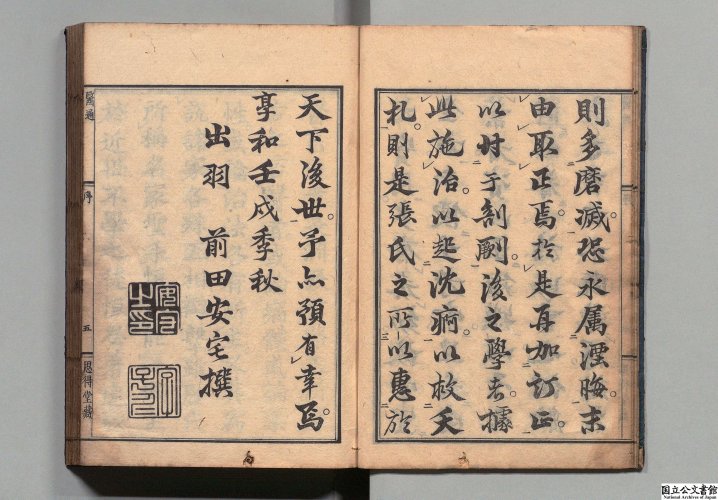 則多磨滅恐永属湮晦末
由取正焉於是再加訂正
以付于剞劂後之學者據
此施治以起沈痾以救夭
札則是張氏之所以惠於
天下後世予亦預有幸焉
享和壬戌季秋
出羽 前田安宅撰
醫通
序
五
思得堂藏
国立公文書館
National Archives of Japan